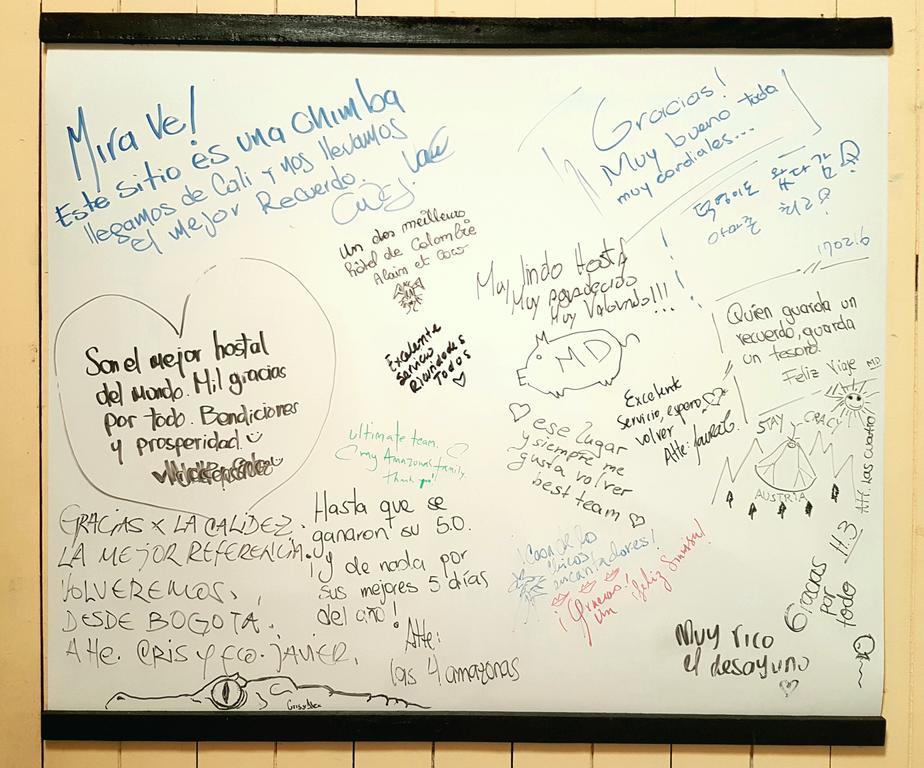 Mira Ve!
Este sitio es una chimba
llegamos de Cali y nos llevamos
el mejor Recuerdo.
¡Gracias!
Muy bueno todo
muy cordiales...
왔다감
170216
Un des meilleurs
hôtel de Colombie
Alain et Coco
Muy lindo Hostal
Muy agradecido
Muy Valorado!!!
MD
Quien guarda un
recuerdo, guarda
un tesoro.
Feliz Viaje MD
Son el mejor hostal
del mundo. Mil gracias
por todo. Bendiciones
y prosperidad.
Excelente
servicio
Todos
Excelente
servicio, espero
volver
Atte: Laura G.
STAY CRAZY
AUSTRIA
Att. Las cuatro
ultimate team.
my Amazonas family.
Thank you!
ese lugar
y siempre me
gusta volver
best team
GRACIAS X LA CALIDEZ.
LA MEJOR REFERENCIA.
VOLVEREMOS.
DESDE BOGOTA.
Atte. CRIS Y FCO. JAVIER.
Hasta que se
ganaron su 5.0.
¡y de nada por
sus mejores 5 días
del año!
Atte:
las 4 amazonas
chicos
encantadores!
¡Gracias!
un ¡feliz
Muy rico
el desayuno
Gracias
por
todo
H.3